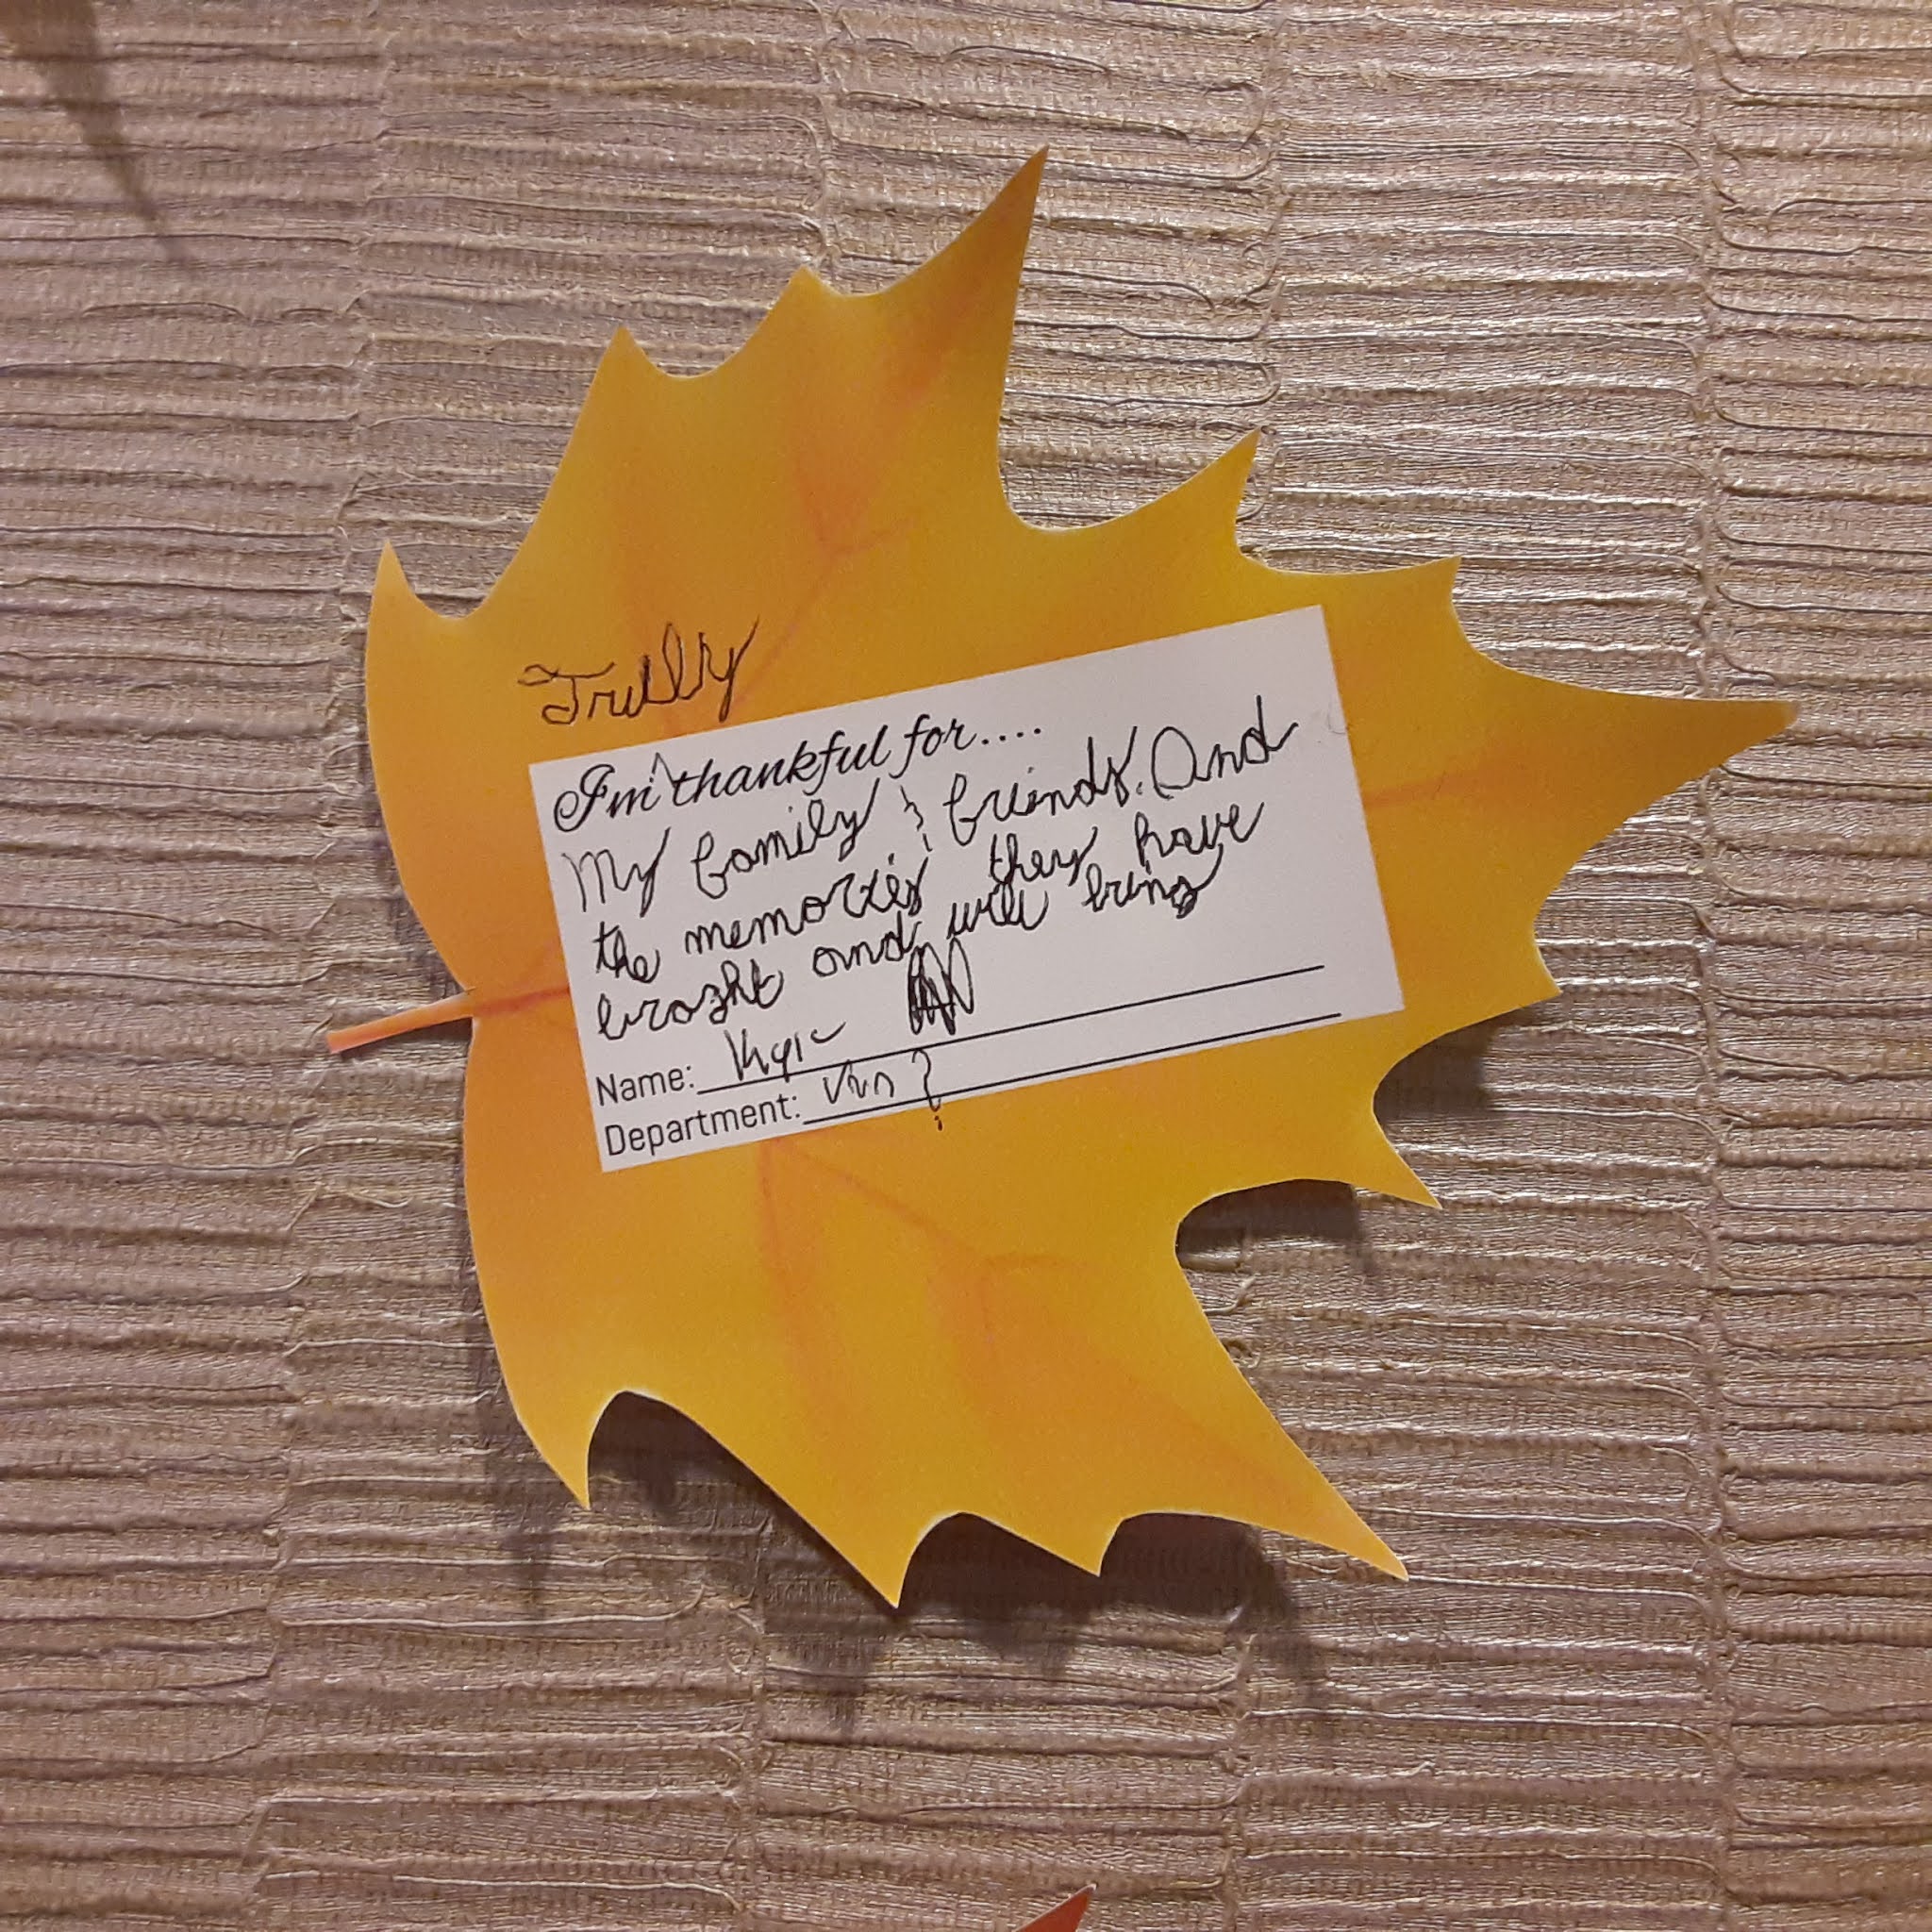 Trully
I'm thankful for....
My family & friends. And
the memories they have
broght and will bring
Name: Kyle
Department: ?